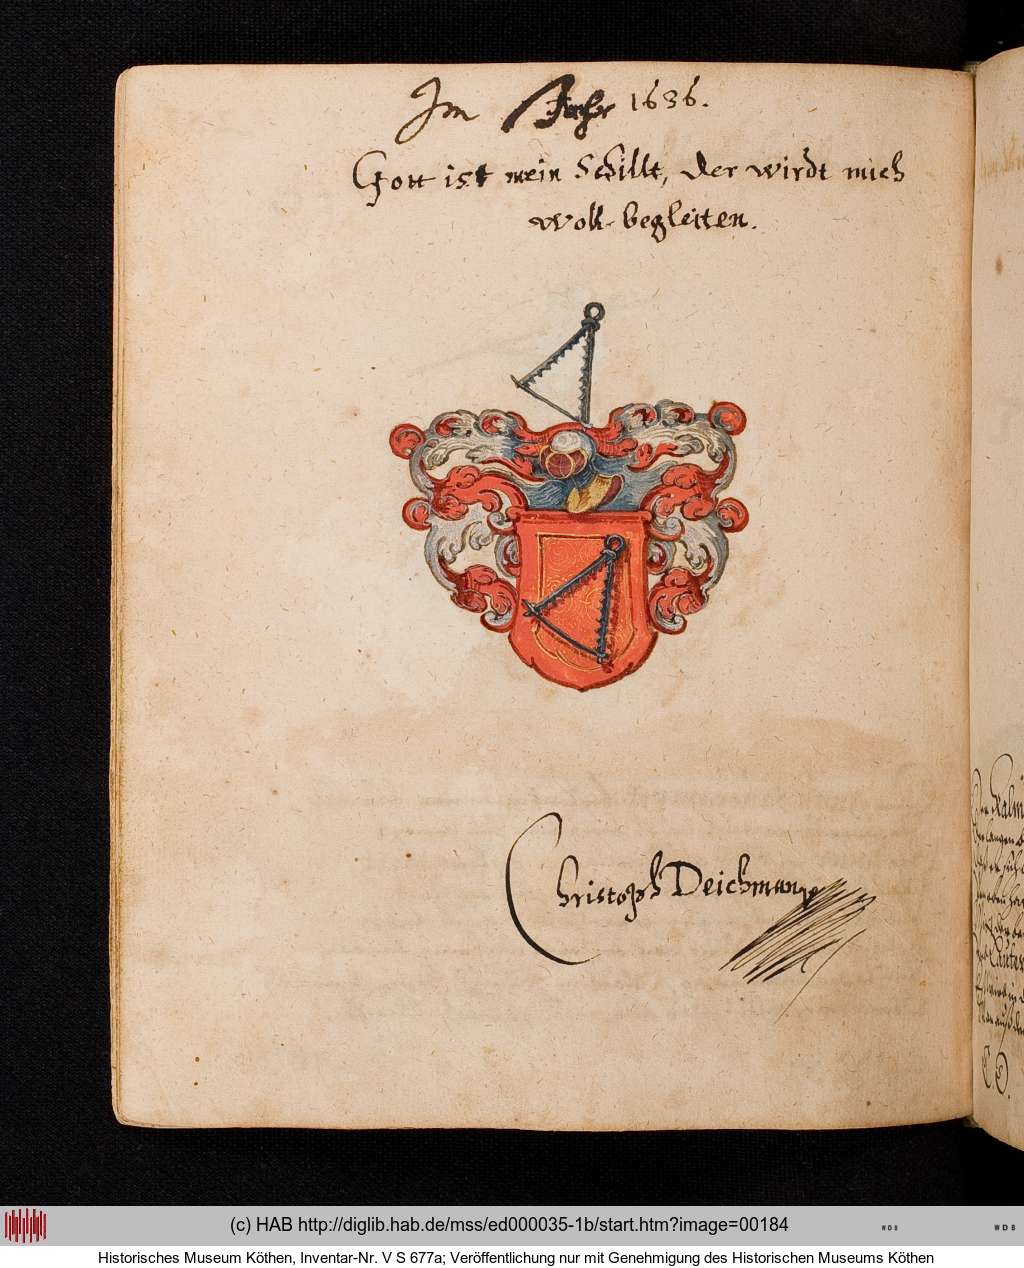 Im Jahr 1636.
Gott ist mein Schillt, der wirdt mich
woll begleitten.
Christoph Deichman
(c) HAB http://diglib.hab.de/mss/ed000035-1b/start.htm?image=00184
WDB
WDB
Historisches Museum Köthen, Inventar-Nr. V S 677a; Veröffentlichung nur mit Genehmigung des Historischen Museums Köthen